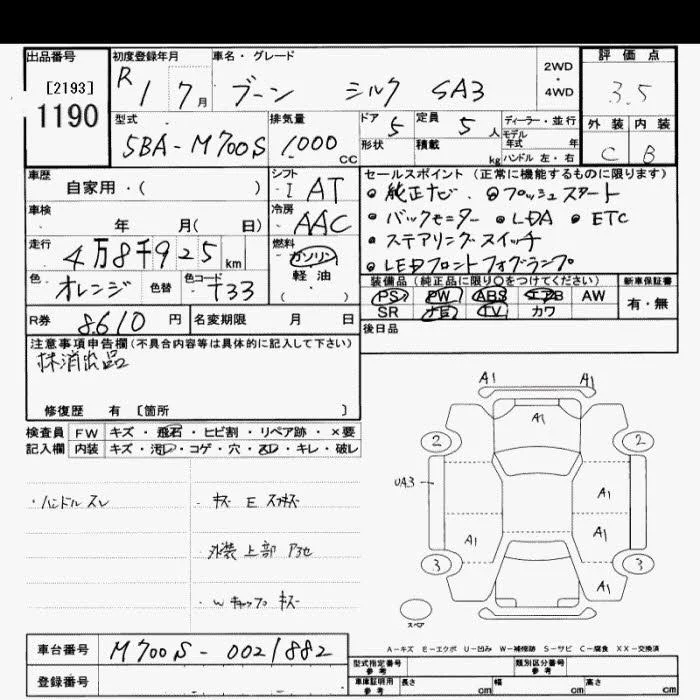 出品番号 初度登録年月 車名・グレード 2WD・4WD 評価点
[2193] R1 7月 ブーン シルク SA3 3.5
1190 型式 排気量 ドア 5 定員 5人 ディーラー・並行 外装 内装
5BA-M700S 1000cc 形状 積載 kg モデル年式 年 C B
ハンドル 左・右
車歴 シフト セールスポイント (正常に機能するものに限ります)
自家用・( ) I AT ●純正ナビ ●プッシュスタート
車検 年 月( 日) 冷房 AAC ●バックモニター ●LDA ●ETC
走行 4万8千925km 燃料 ガソリン ●ステアリングスイッチ
色 オレンジ 色替 色コード T33 軽油 ( ) ●LEDフロントフォグランプ
装備品(純正品に限り○をつけてください) 新車保証書
PS PW ABS エアB AW 有・無
SR ナビ TV カワ
R券 8610円 名変期限 月 日 後日品
注意事項申告欄(不具合内容等は具体的に記入して下さい)
抹消出品
修復歴 有 [箇所 ]
検査員 FW キズ・飛石・ヒビ割・リペア跡・×要
記入欄 内装 キズ・汚レ・コゲ・穴・スレ・キレ・破レ
・ハンドル スレ
・キズ E スリキズ
外装 上部
・Wキャップ キズ
A1 A1
A1
2 2
UA3 A1
A1 A1
3 3
A1
スペア
A-キズ E-エクボ U-凹み W-補修跡 S-サビ C-腐食 XX-交換済
車台番号 M700S-0021882
登録番号
型式指定番号 参考 類別区分番号 参考
車庫証明用 参考 長さ cm 幅 cm 高さ cm